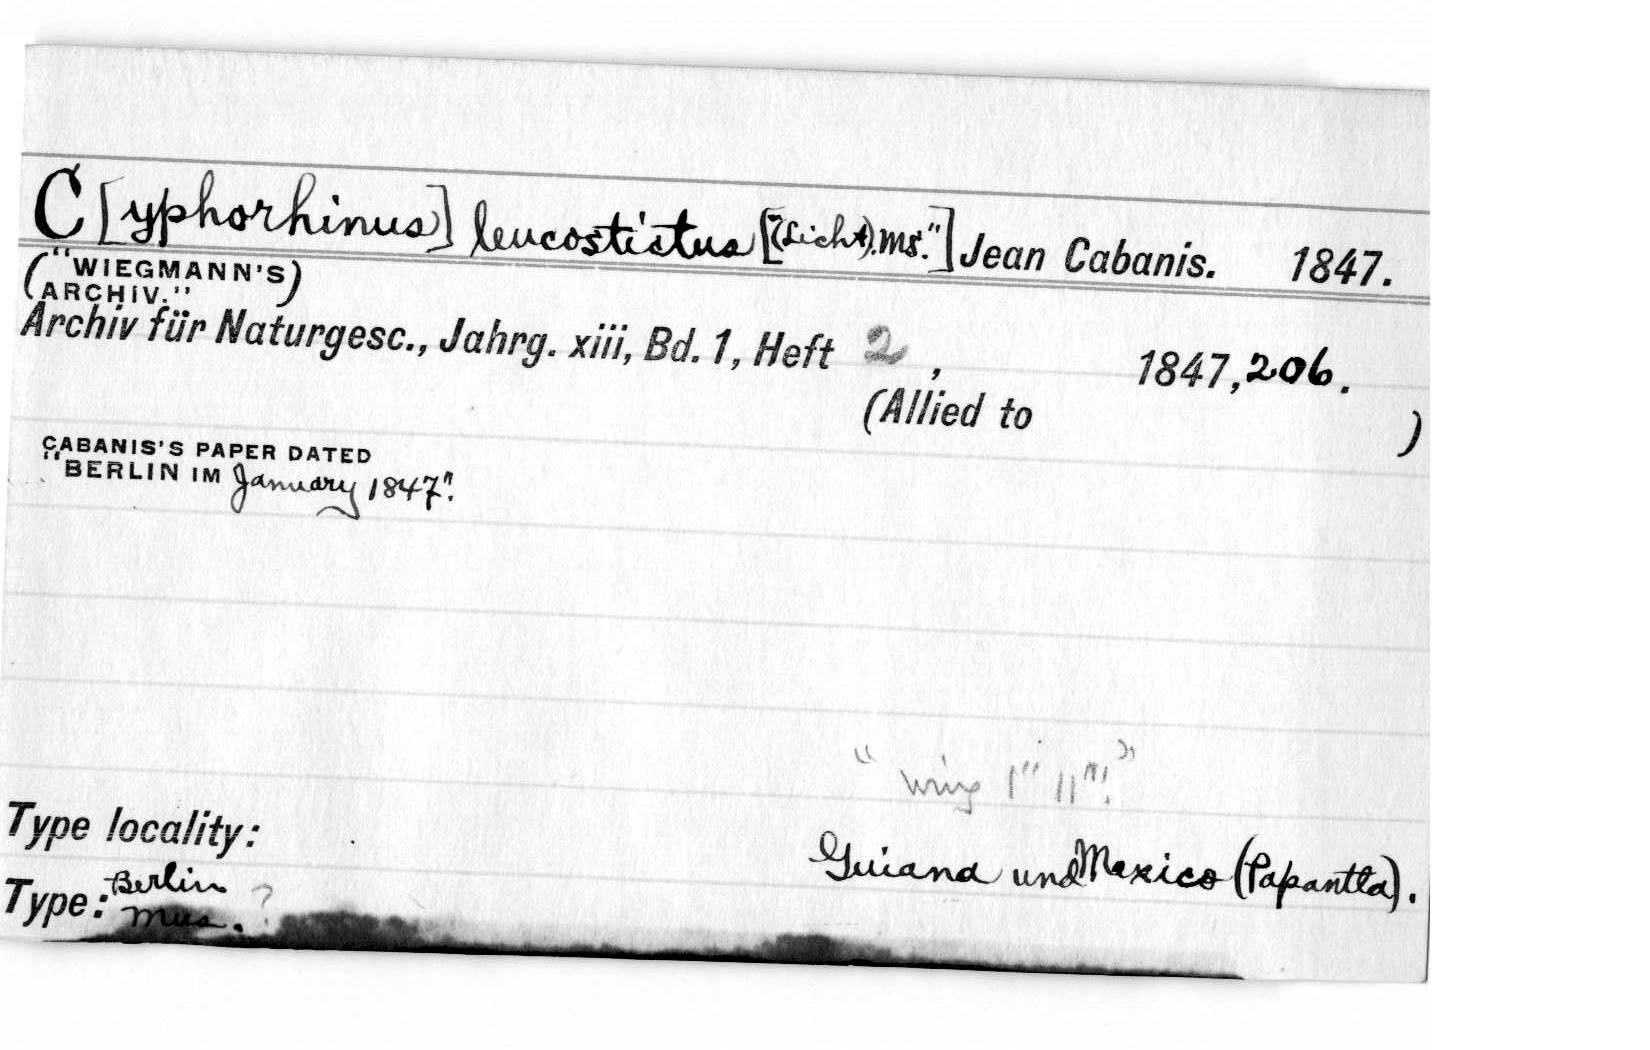 C[yphorhinus] leucostictus ["(Licht). Ms."] Jean Cabanis. 1847.
("WIEGMANN'S)
(ARCHIV."
Archiv für Naturgesc., Jahrg. xiii, Bd. 1, Heft 2, 1847, 206.
(Allied to )
CABANIS'S PAPER DATED
"BERLIN IM January 1847".
"wing 1'" 11'"!"
Type locality: Guiana und Mexico (Papantla).
Type: Berlin Mus. ?